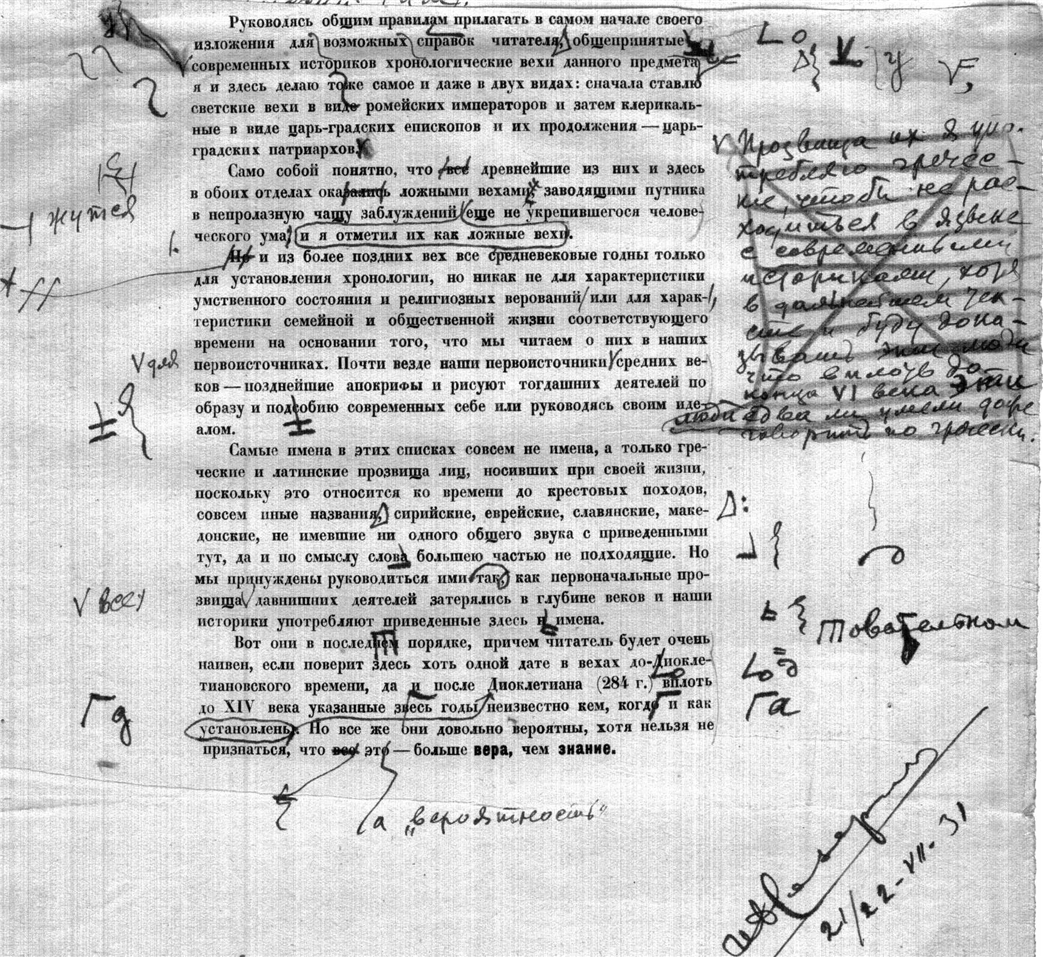 Руководясь общим правилам прилагать в самом начале своего
изложения для возможных справок читателя, общепринятые
современных историков хронологические вехи данного предмета
я и здесь делаю тоже самое и даже в двух видах: сначала ставлю
светские вехи в виде ромейских императоров и затем клерикаль-
ные в виде царь-градских епископов и их продолжения — царь-
градских патриархов.
Само собой понятно, что все древнейшие из них и здесь
в обоих отделах оказались ложными вехами, заводящими путника
в непролазную чащу заблуждений еще не укрепившегося челове-
ческого ума, и я отметил их как ложные вехи.
Но и из более поздних вех все средневековые годны только
для установления хронологии, но никак не для характеристики
умственного состояния и религиозных верований или для харак-
теристики семейной и общественной жизни соответствующего
времени на основании того, что мы читаем о них в наших
первоисточниках. Почти везде наши первоисточники средних ве-
ков — позднейшие апокрифы и рисуют тогдашних деятелей по
образу и подобию современных себе или руководясь своим иде-
алом.
Самые имена в этих списках совсем не имена, а только гре-
ческие и латинские прозвища лиц, носивших при своей жизни,
поскольку это относится ко времени до крестовых походов,
совсем иные названия, сирийские, еврейские, славянские, маке-
донские, не имевшие ни одного общего звука с приведенными
тут, да и по смыслу слова большею частью не подходящие. Но
мы принуждены руководиться ими так, как первоначальные про-
звища давнишних деятелей затерялись в глубине веков и наши
историки употребляют приведенные здесь имена.
Вот они в последнем порядке, причем читатель будет очень
наивен, если поверит здесь хоть одной дате в вехах до-Диокле-
тиановского времени, да и после Диоклетиана (284 г.) вплоть
до XIV века указанные здесь годы неизвестно кем, когда и как
установлены. Но все же они довольно вероятны, хотя нельзя не
признаться, что все это — больше вера, чем знание.
жутся
для
всех
Гд
а „вероятность"
Прозвища их я упо-
требляю гречес-
кие, чтобы не рас-
ходиться в языке
с современными
историками, хотя
в дальнейшем тек-
сте и буду дока-
зывать
что вплоть до
конца VI века эти
люди едва ли умели даже
говорить по гречески.
товательном
Га
21/22-VII-31